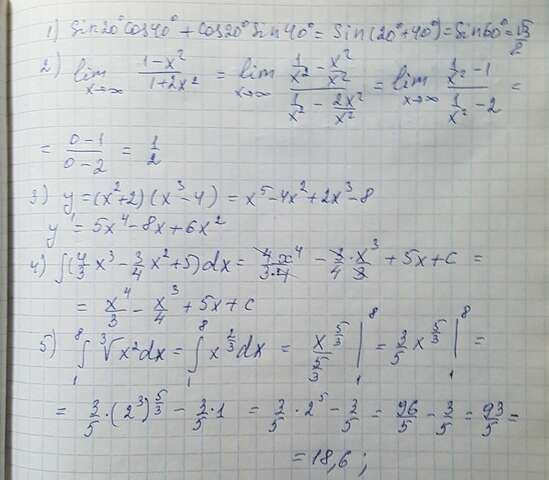 1) Sin20°Cos40° + Cos20°Sin40° = Sin(20°+40°) = Sin60° = √3/2
2) lim x→∞ (1-x²)/(1+2x²) = lim x→∞ (1/x² - x²/x²)/(1/x² - 2x²/x²) = lim x→∞ (1/x² - 1)/(1/x² - 2) =
= (0-1)/(0-2) = 1/2
3) y = (x²+2)(x³-4) = x⁵-4x²+2x³-8
y' = 5x⁴-8x+6x²
4) ∫(4/3 x³ - 3/4 x² + 5)dx = 4x⁴/(3·4) - 3/4 · x³/3 + 5x + c =
= x⁴/3 - x³/4 + 5x + c
5) ∫₁⁸ ∛x² dx = ∫₁⁸ x^(2/3) dx = x^(5/3)/(5/3) |₁⁸ = 3/5 x^(5/3) |₁⁸ =
= 3/5 · (2³)^(5/3) - 3/5 · 1 = 3/5 · 2⁵ - 3/5 = 96/5 - 3/5 = 93/5 =
= 18,6;